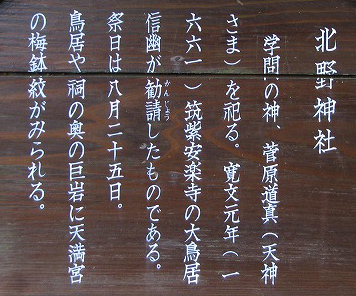 北野神社
学問の神、菅原道真（天神
さま）を祀る。寛文元年（一
六六一）筑紫安楽寺の大鳥居
信幽が勧請したものである。
かんじょう
祭日は八月二十五日。
鳥居や祠の奥の巨岩に天満宮
の梅鉢紋がみられる。